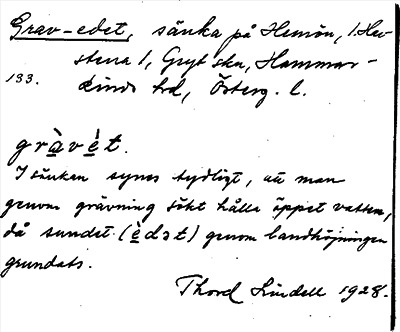 Grav-edet, sänka på Hemön, 1. Hav-
stena 1, Gryt skn, Hammar-
133. kinds hd, Österg. l.
gràvèt.
I sänkan synes tydligt, att man
genom grävning sökt hålla öppet vatten,
då sundet (èdət) genom landhöjningen
grundats.
Thord Lindell 1928.